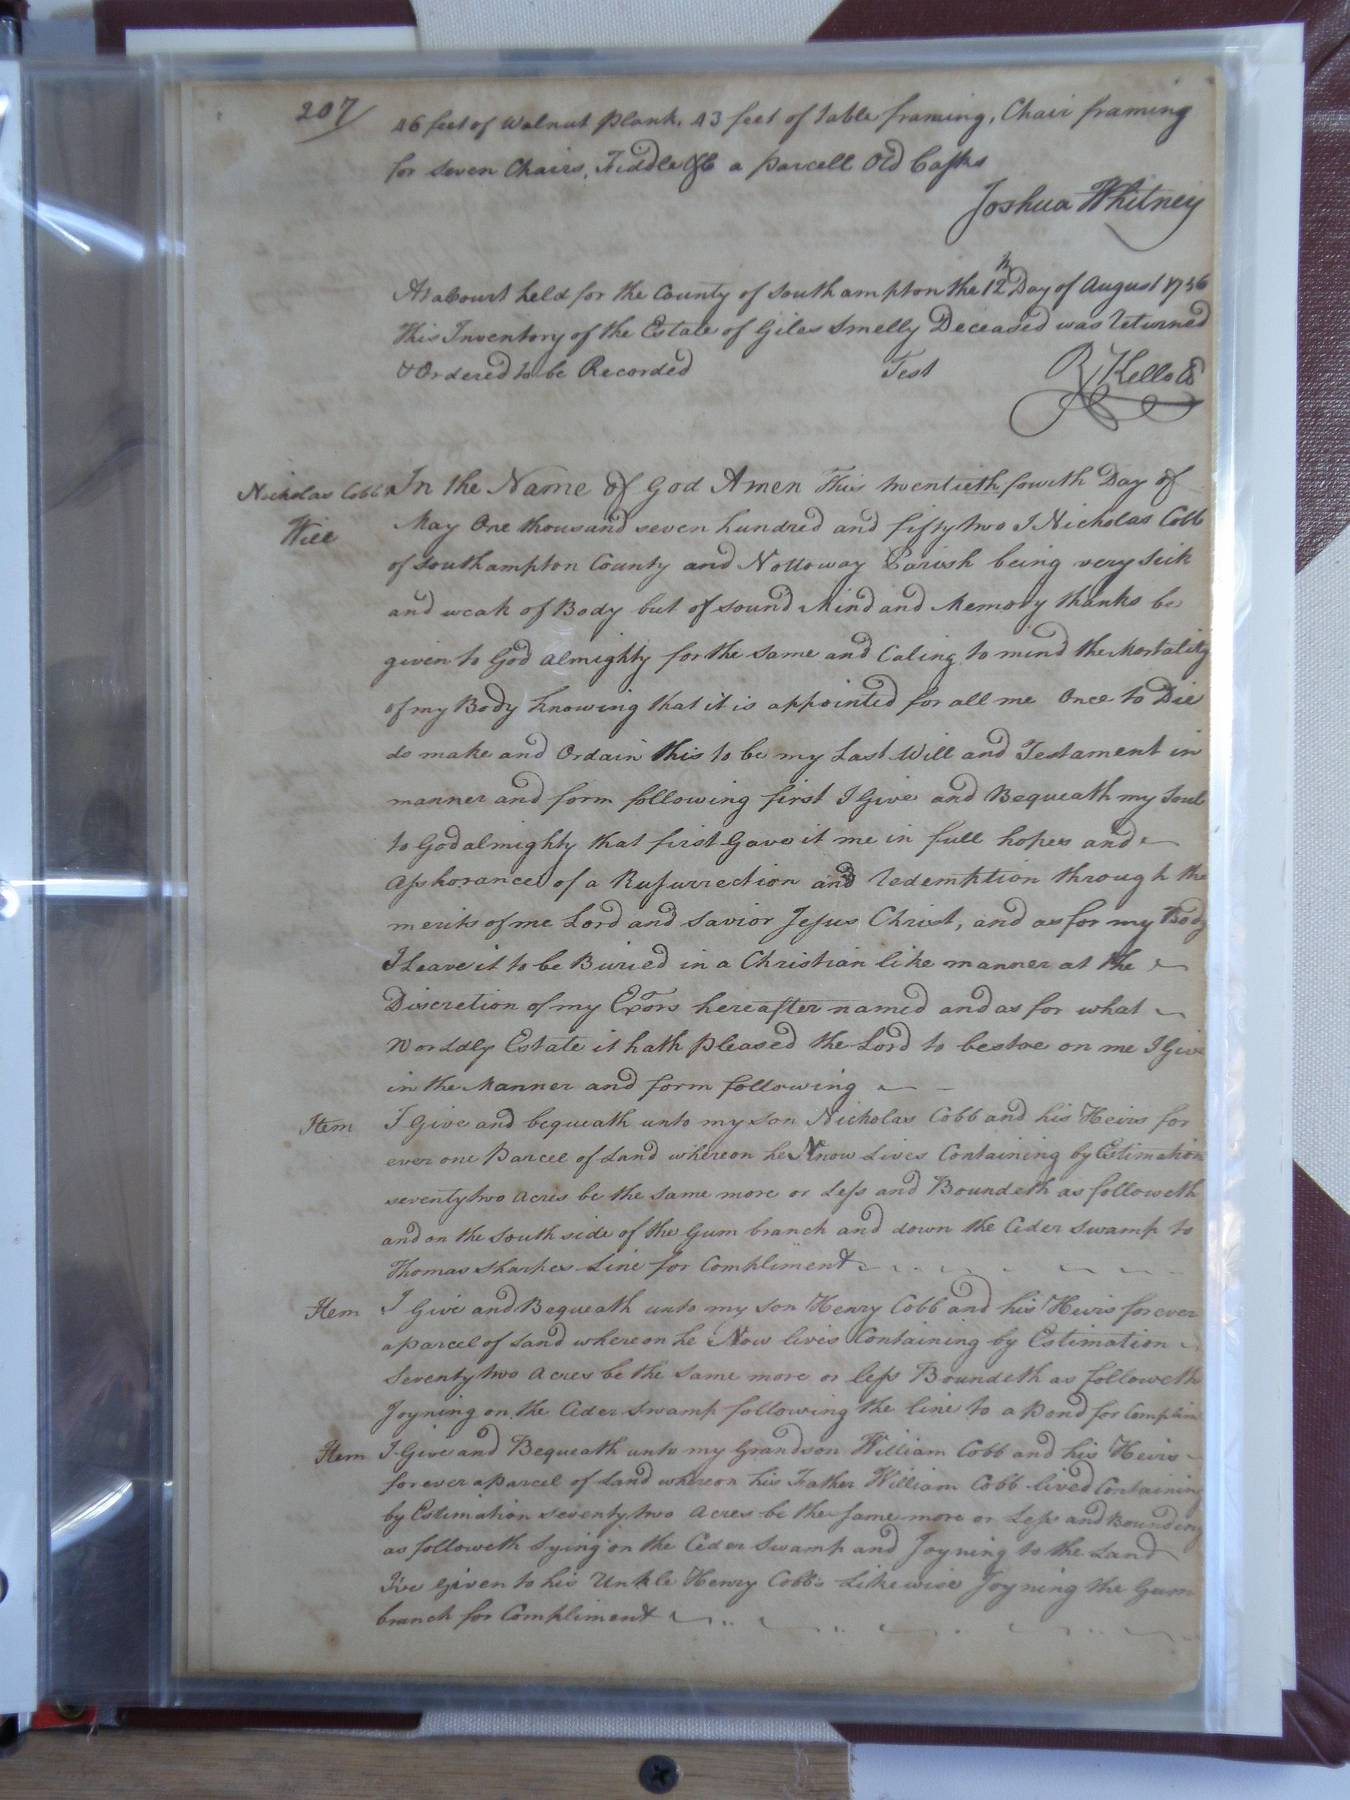 207/
46 feet of Walnut Plank. 43 feet of table framing, Chair framing
for seven Chairs, Fiddle &c a parcell Old Casks
Joshua Whitney
At a Court held for the County of Southampton the 12th Day of August 1756
This Inventory of the Estate of Giles Smelly Deceased was returned
& Ordered to be Recorded Test R Kello CC
Nicholas Cobbs
Will
In the Name of God Amen This twentieth fourth Day of
May One thousand seven hundred and fifty two I Nicholas Cobb
of Southampton County and Nottoway Parish being very sick
and weak of Body but of sound Mind and Memory thanks be
given to God almighty for the same and Caling to mind the Mortality
of my Body knowing that it is appointed for all me Once to Die
do make and Ordain this to be my Last Will and Testament in
manner and form following first I Give and Bequeath my Soul
to God almighty that first Gave it me in full hopes and
Asshorance of a Resurrection and redemption through the
merits of me Lord and Savior Jesus Christ, and as for my Body
I Leave it to be Buried in a Christian like manner at the
Discretion of my Exors hereafter named and as for what
Worldly Estate it hath pleased the Lord to bestoe on me I Give
in the Manner and form following
Item I Give and bequeath unto my son Nicholas Cobb and his Heirs for
ever one Parcel of Land whereon he Now Lives Containing by Estimation
seventy two Acres be the same more or Less and Boundeth as followeth
and on the south side of the Gum branch and down the Ceder swamp to
Thomas Sharpes Line for Compliment
Item I Give and Bequeath unto my son Henry Cobb and his Heirs forever
a parcel of Land whereon he Now lives Containing by Estimation
Seventy two Acres be the same more or less Boundeth as followeth
Joyning on the Ceder Swamp following the line to a Pond for Complim
Item I Give and Bequeath unto my Grandson William Cobb and his Heirs
for ever a parcel of Land whereon his Father William Cobb lived Containing
by Estimation seventy two Acres be the same more or Less and Bounding
as followeth Lying on the Ceder Swamp and Joyning to the Land
I've Given to his Unkle Henry Cobb Likewise Joyning the Gum
branch for Compliment